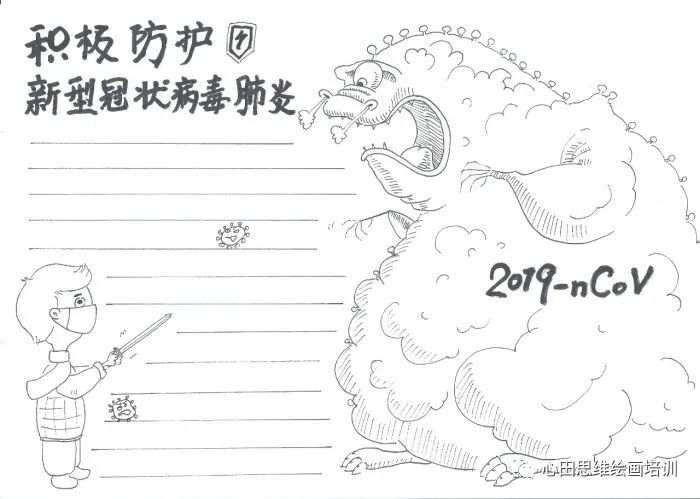 积极防护
新型冠状病毒肺炎
2019-nCoV
心田思维绘画培训